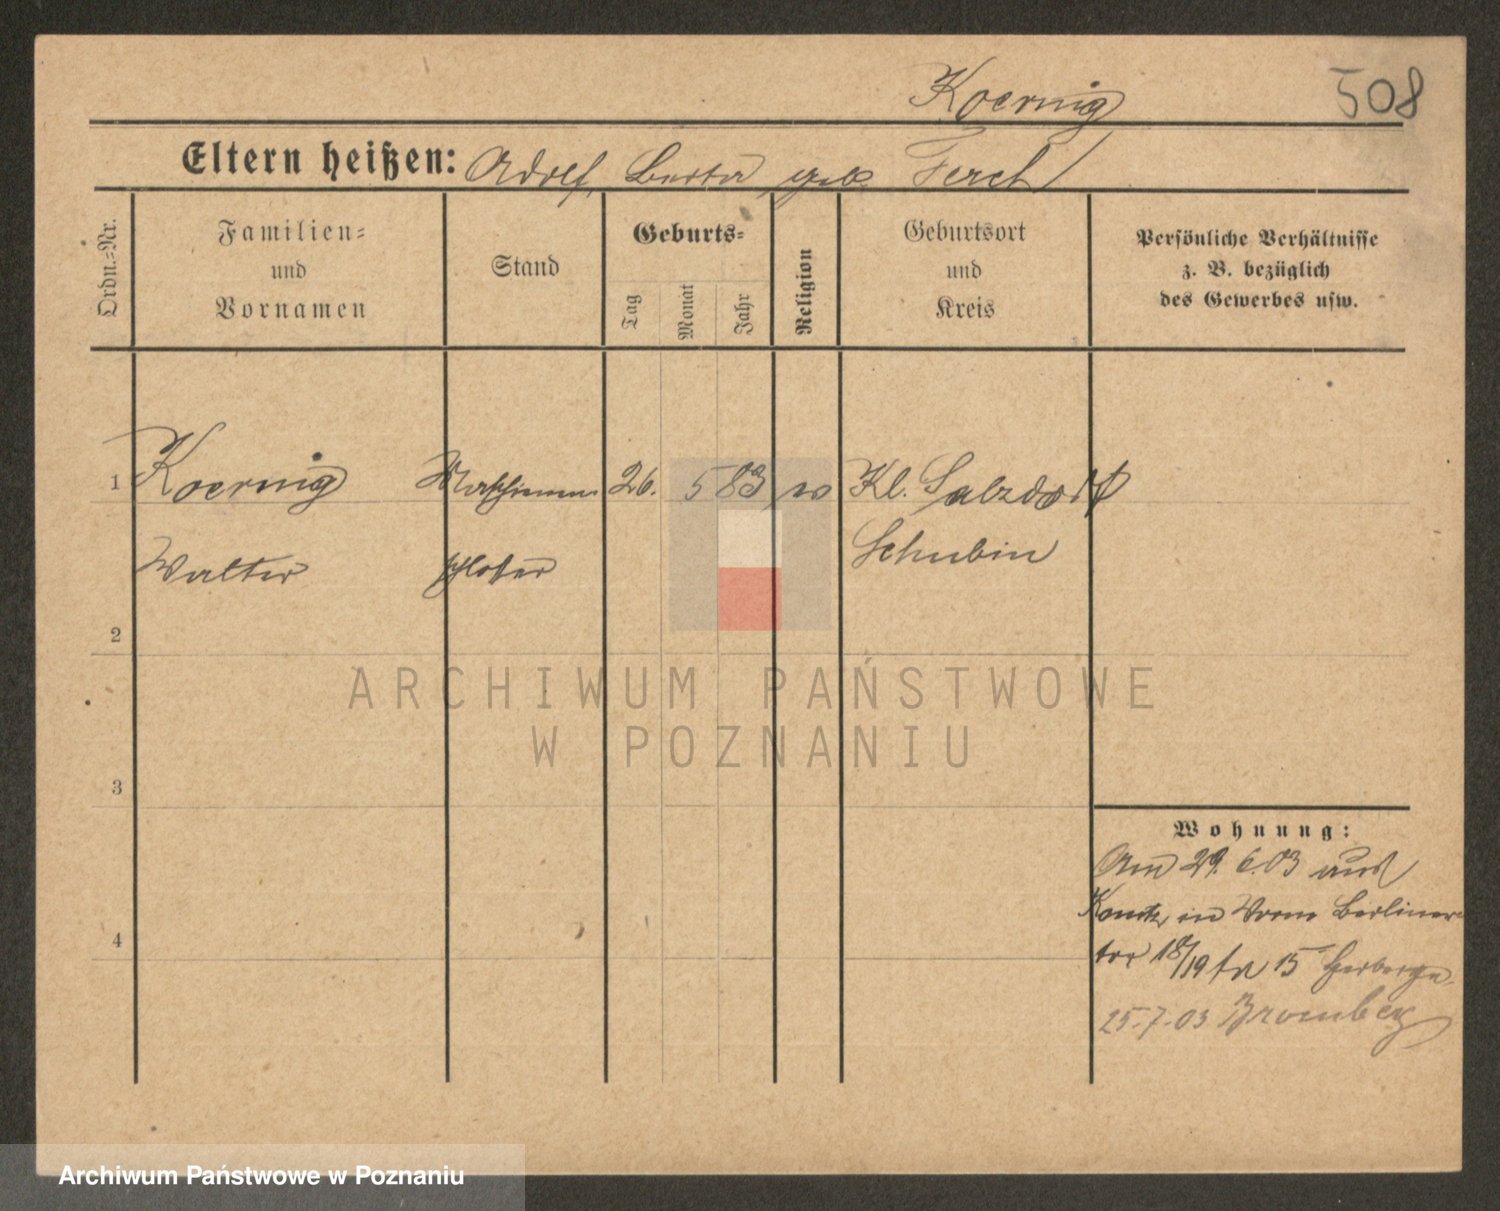 Koernig
508
Eltern heißen: Adolf, Berta geb. Ferch
Ordn.-Nr.
Familien-
und
Vornamen
Stand
Geburts-
Tag
Monat
Jahr
Religion
Geburtsort
und
Kreis
Persönliche Verhältnisse
z. B. bezüglich
des Gewerbes usw.
1 Koernig Maschinen 26. 5 83 ev Kl. Salzdorf
Walter schlosser Schubin
2
3
4
Wohnung:
Am 29. 6. 03 aus
Konitz, in Berliner
tor 18/19 15 Herberge
25.7.03 Bromberg
ARCHIWUM PAŃSTWOWE
W POZNANIU
Archiwum Państwowe w Poznaniu